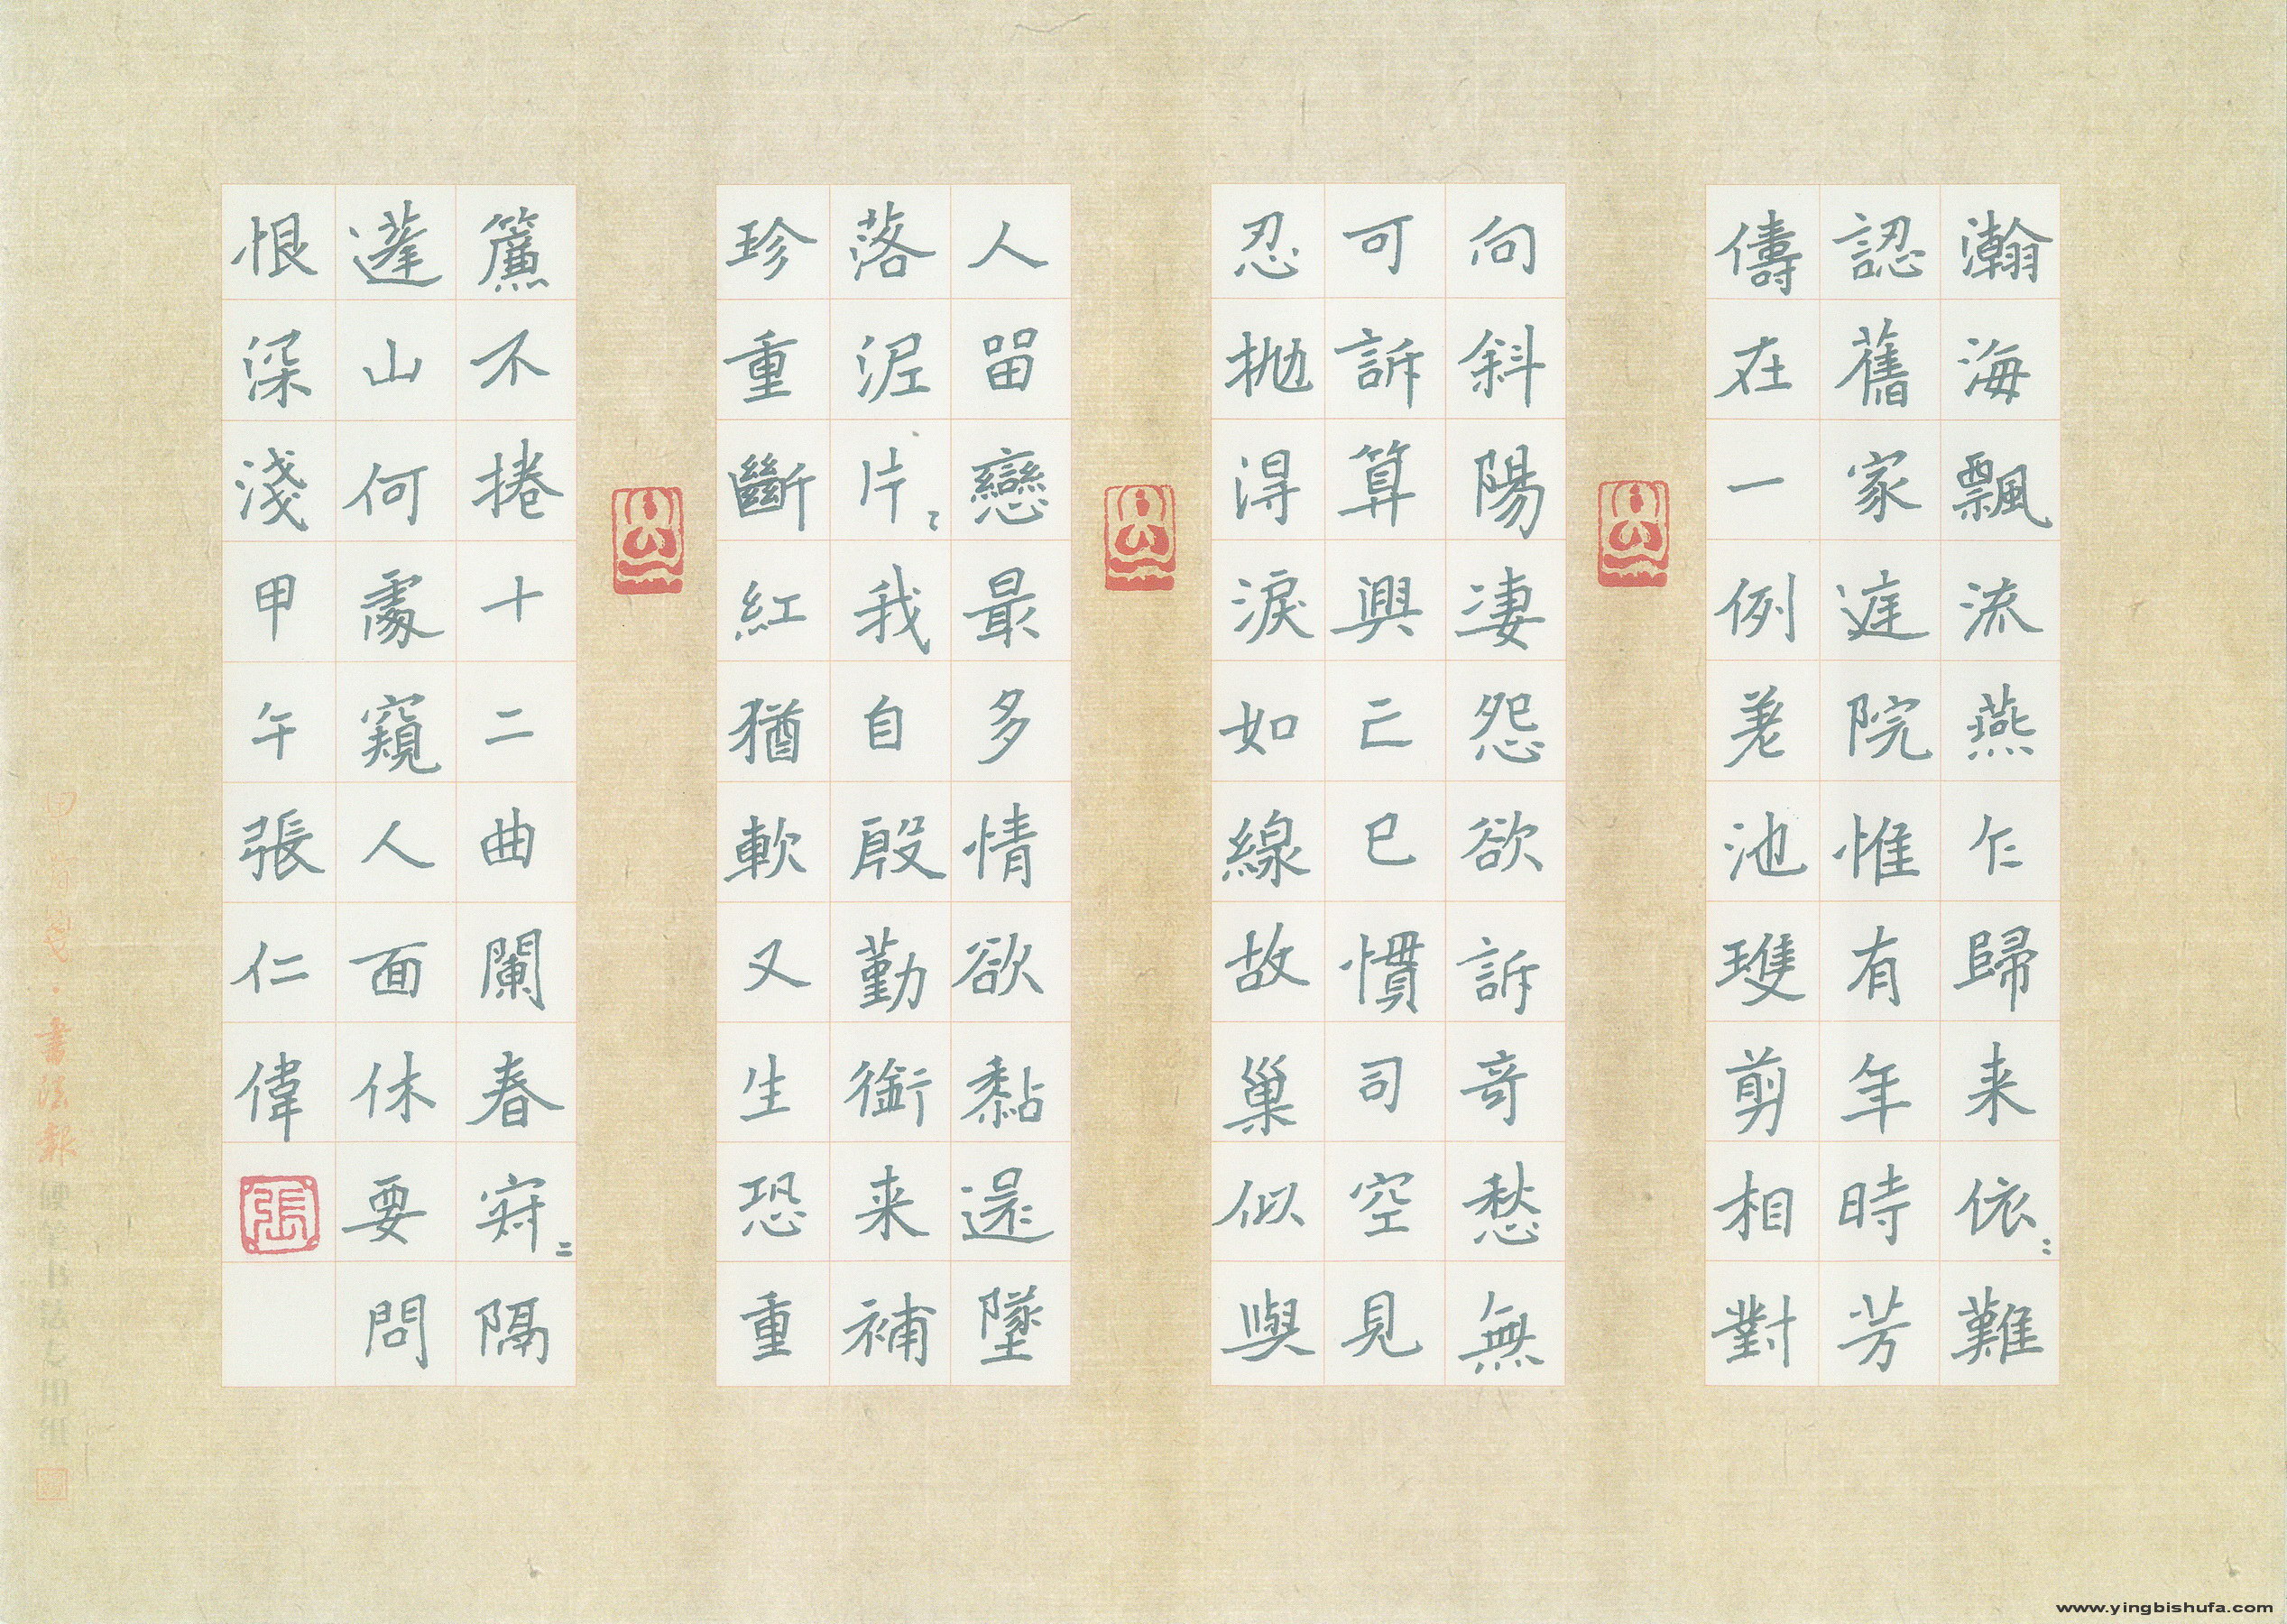 瀚海飄流燕乍歸来依〻難
認舊家庭院惟有年時芳
儔在一例差池雙剪相對
向斜陽凄怨欲訴奇愁無
可訴算興亡已慣司空見
忍抛得淚如線故巢似與
人留戀最多情欲黏還墜
落泥片〻我自殷勤銜来補
珍重斷紅猶軟又生恐重
簾不捲十二曲闌春寂〻隔
蓬山何處窺人面休要問
恨深淺甲午張仁偉
張
書法報
硬笔书法专用纸
www.yingbishufa.com